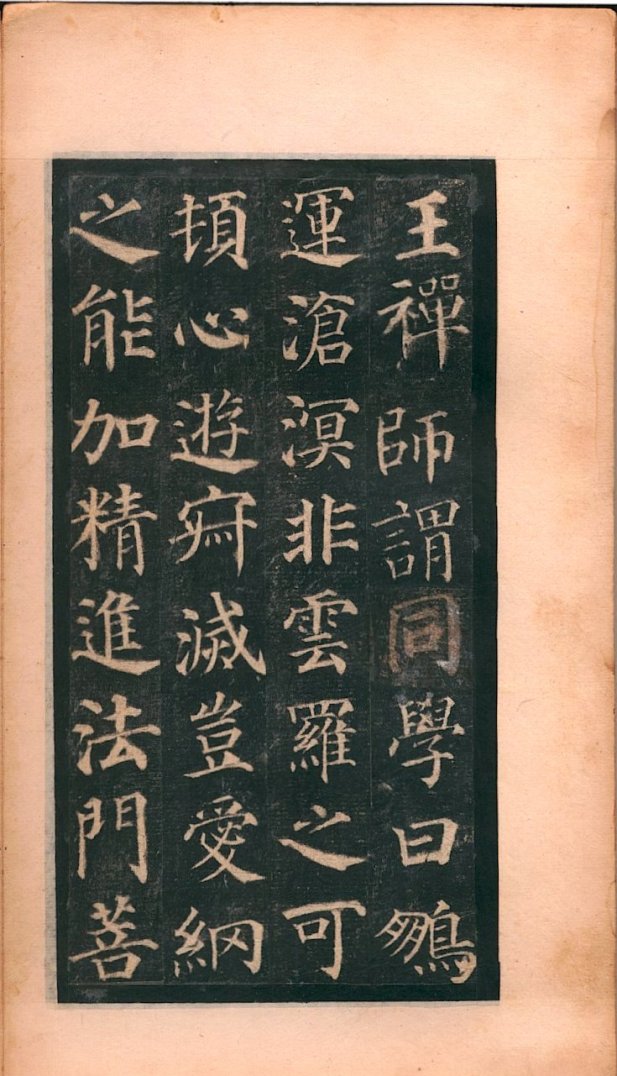 王禪師謂同學曰鵬
運滄溟非雲羅之可
頓心遊寂滅豈愛網
之能加精進法門菩